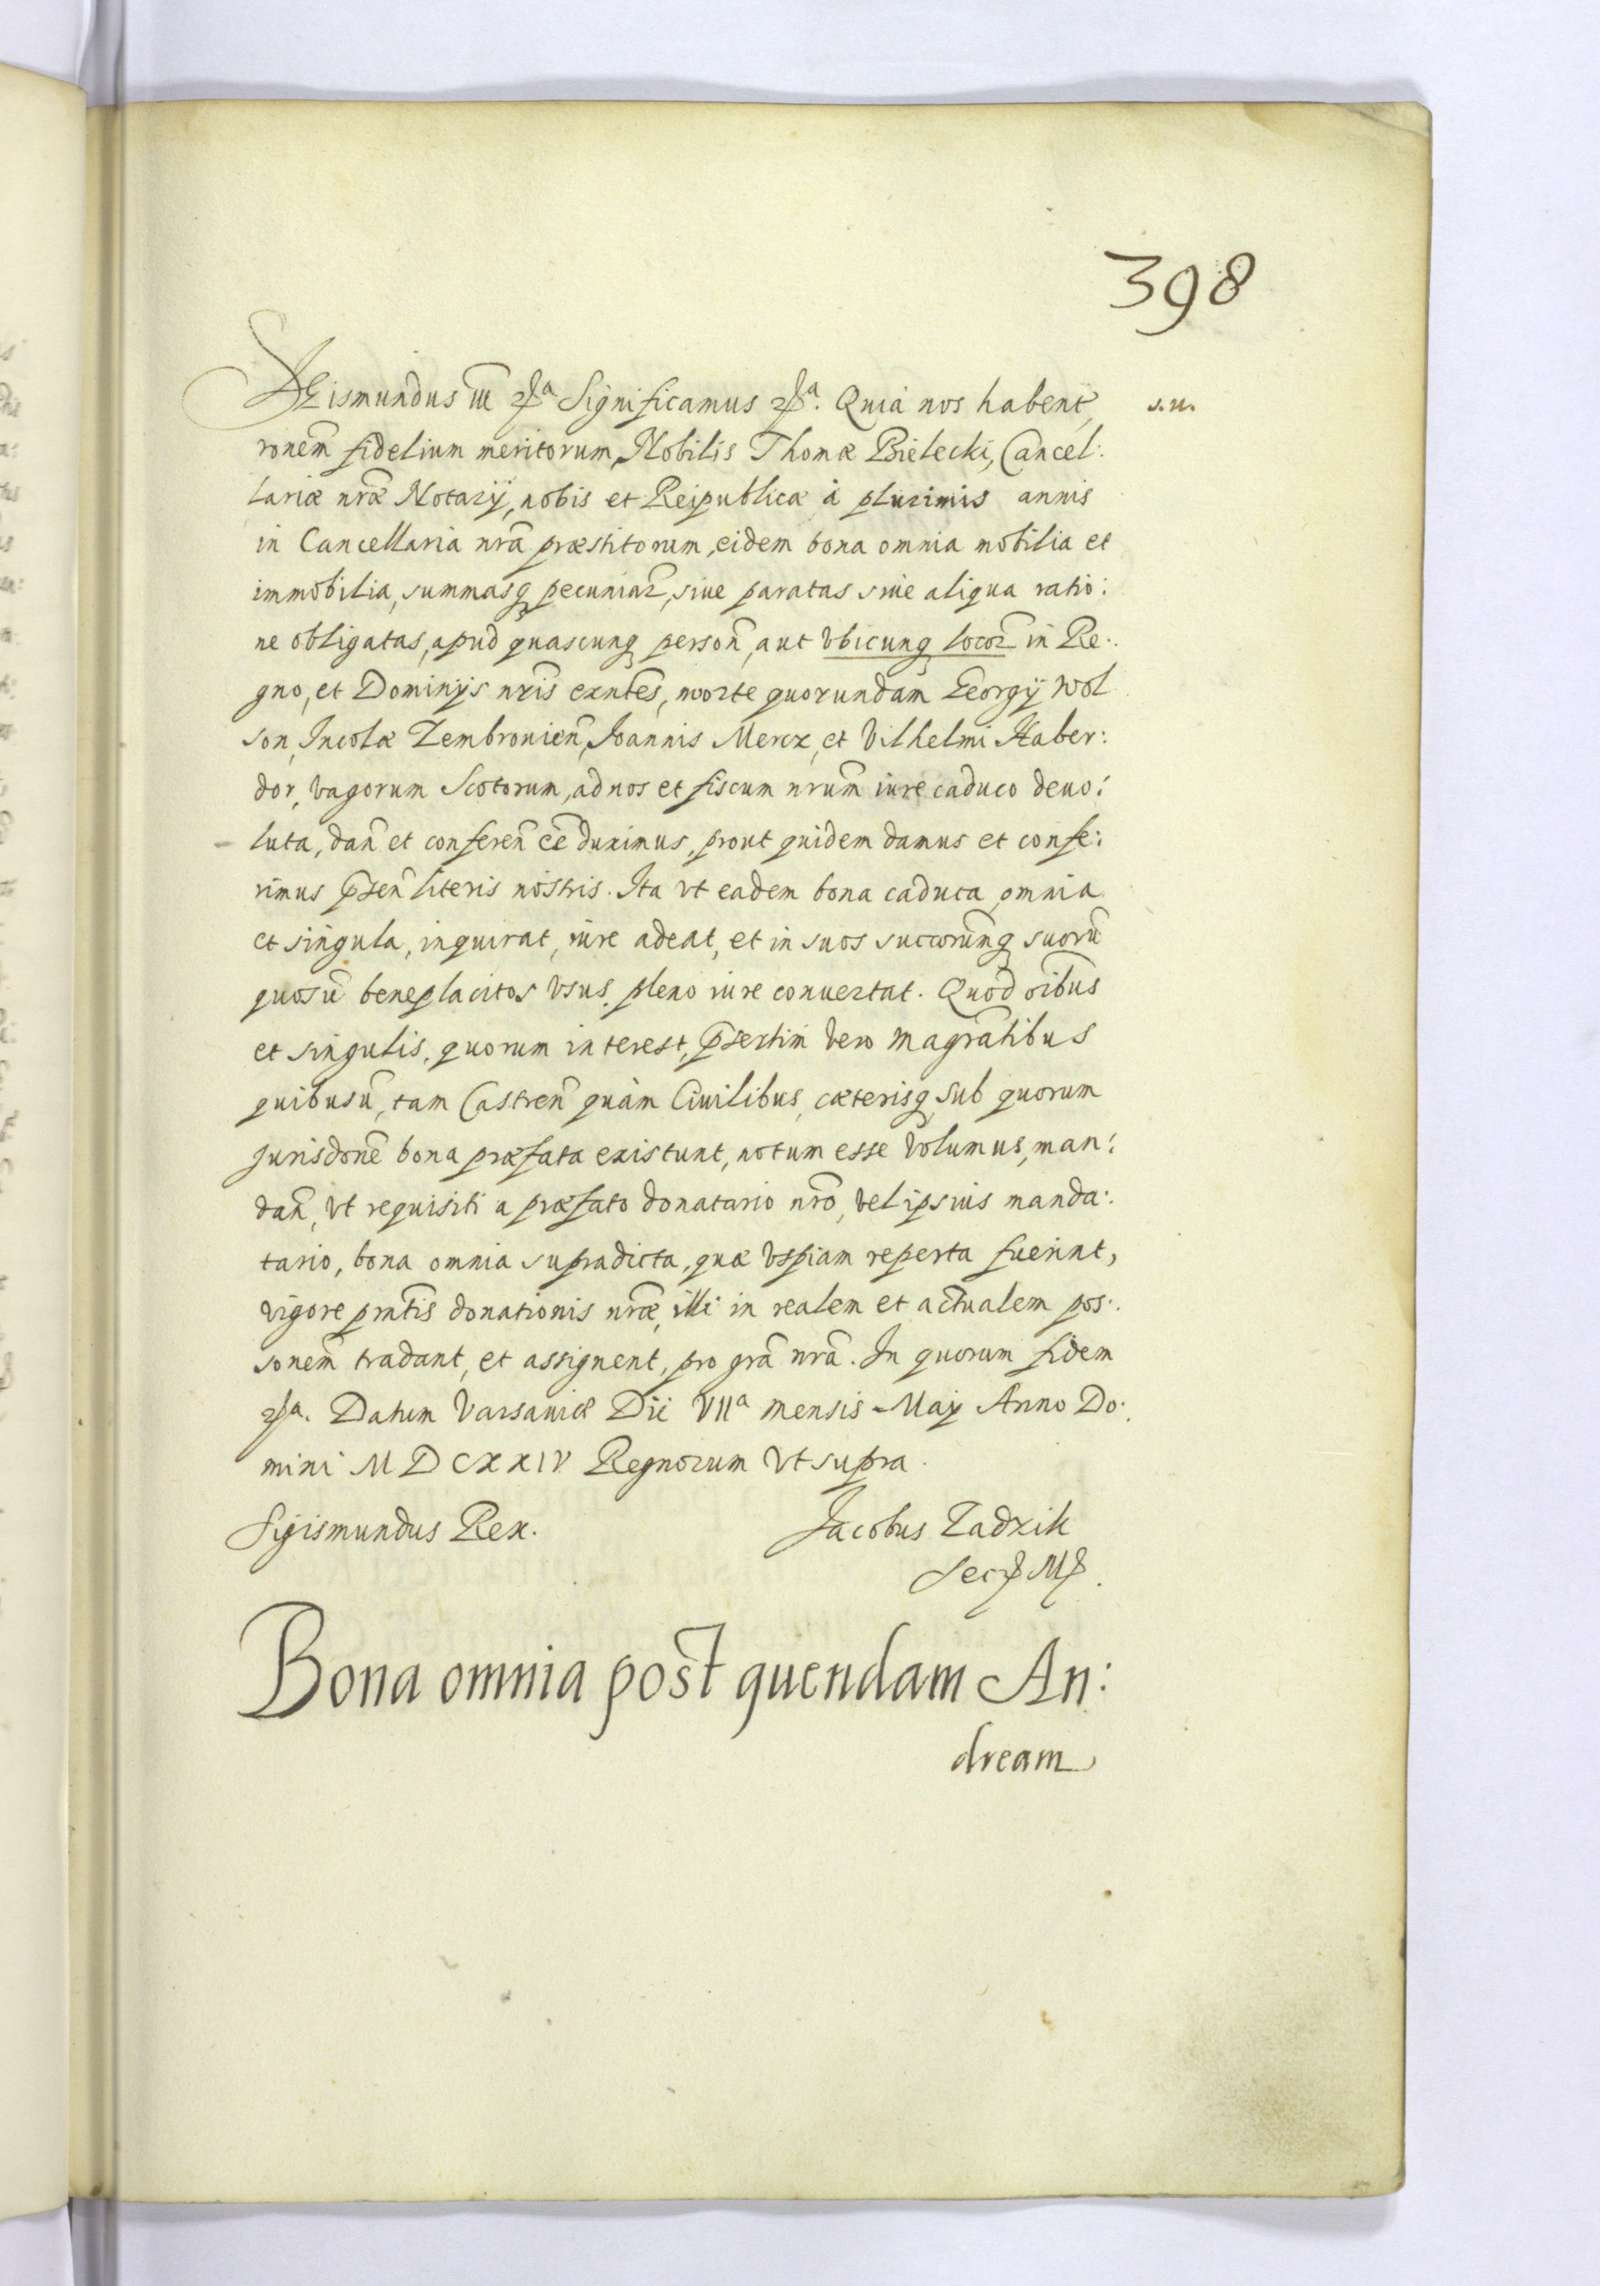 398
Sigismundus III etca Significamus etca. Quia nos habent, s.n.
ronem̃ fidelium meritorum, Nobilis Thomæ Bielecki, Cancel:
lariæ nræ̃ Notarÿ, nobis et Reipublicæ à plurimis annis
in Cancellaria nrã præstitorum, eidem bona omnia mobilia et
immobilia, summasq pecuniar̃, siue paratas siue aliqua ratio:
ne obligatas, apud quascunq person̄, aut vbicunq locor̃ in Re:
gno, et Dominijs nrĩs exñtes, morte quorundam Georgÿ Wol
son, Incolæ Zembronien̄, Joannis Merex, et Vilhelmi Haber:
dor, vagorum Scotorum, ad nos et fiscum nrum̃ iure caduco deuo:
luta, dan̄ et conferen̄ eẽ duximus, prout quidem damus et confe:
rimus p̃sen̄ literis nostris. Ita vt eadem bona caduca omnia
et singula, inquirat, iure adeat, et in suos succorum̃q suorũ
quosũ beneplacitos vsus, pleno iure conuertat. Quod oĩbus
et singulis, quorum interest, p̃sertim vero magrãtibus
quibusũ, tam Castren̄ quàm Ciuilibus, cæterisq sub quorum
Jurisdonẽ bona præfata existunt, notum esse volumus, man:
dan̄, vt requisiti a præfato donatario nrõ, vel ipsius manda:
tario, bona omnia supradicta, quæ vspiam reperta fuerint,
vigore prñtis donationis nræ̃, illi in realem et actualem pos:
sonem̃ tradant, et assignent, pro grã nrã. In quorum fidem
etca. Datum Varsauiæ Die VIIa mensis Maÿ Anno Do:
mini MDCXXIV Regnorum vt supra.
Sigismundus Rex. Jacobus Zadzik
Secr. M.
Bona omnia post quendam An:
dream